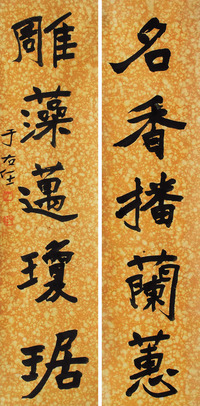 名香播蘭蕙
雕藻邁瓊琚
于右任